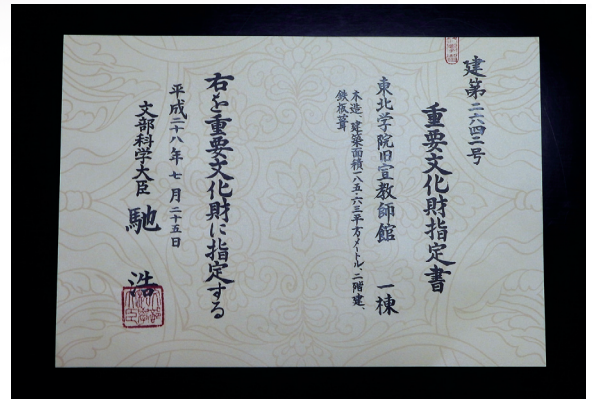 建第二六四二号
重要文化財指定書
東北学院旧宣教師館　一棟
木造、建築面積一八五・六三平方メートル、二階建、
鉄板葺
右を重要文化財に指定する
平成二十八年七月二十五日
文部科学大臣　馳　浩